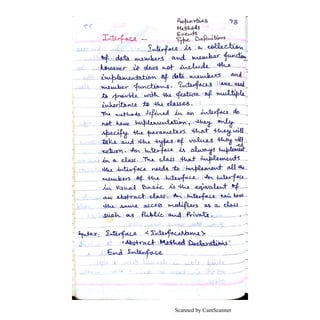 Properties 78
Methods
Events
Type Definitions
Interface -
Interface is a collection
of data members and member function
however it does not include the
implementation of data members and
member functions. Interfaces are used
to provide with the feature of multiple
inheritance to the classes.
The methods defined in an interface do
not have implementation, they only
specify the parameters that they will
take and the types of values they will
return. An Interface is always implemented
in a class. The class that implements
the interface needs to implement all the
members of the interface. An interface
in Visual Basic is the equivalent of
an abstract class. An Interface can have
the same access modifiers as a class
such as Public and Private.
Syntax: Interface <InterfaceName>
'Abstract Method Declarations'
End Interface
Scanned by CamScanner